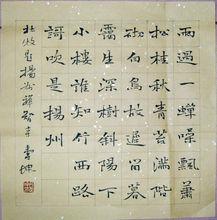 雨過一蟬噪飄蕭
松桂秋青苔滿階
砌白鳥故遲留暮
靄生深樹斜陽下
小樓誰知竹西路
謌吹是揚州
杜牧題揚州禪智寺